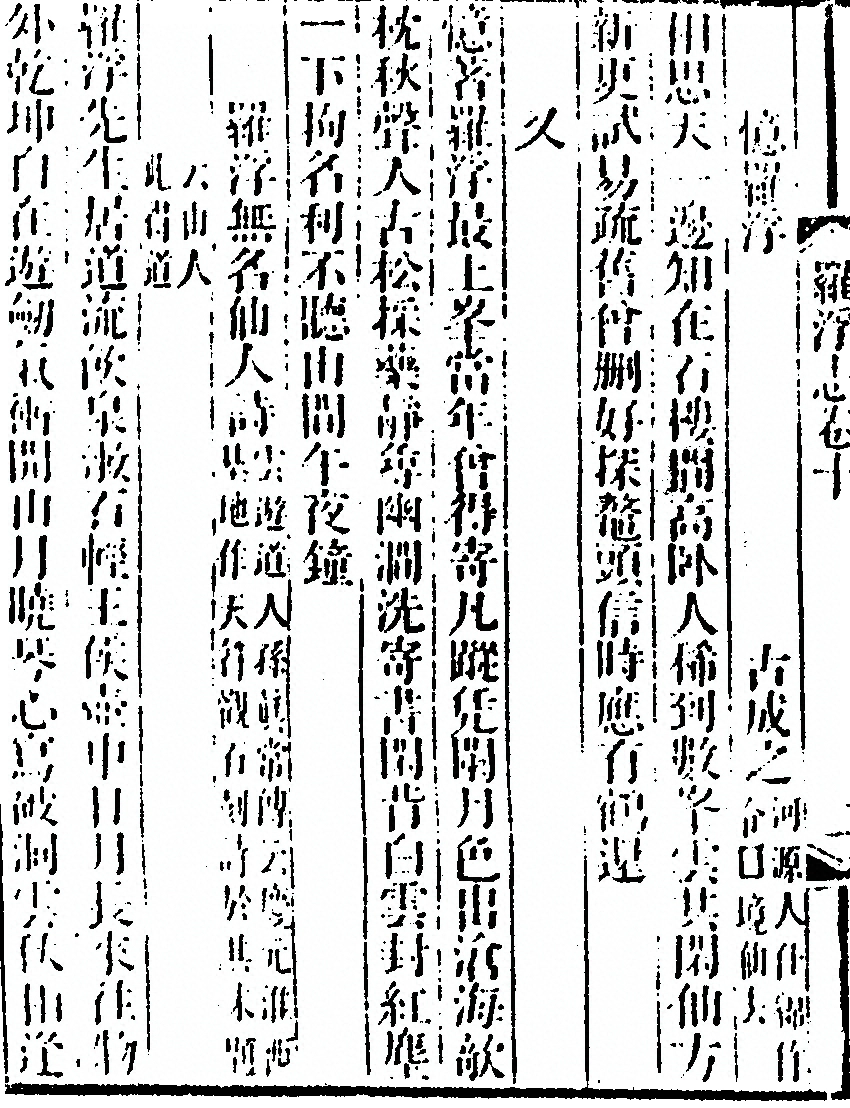 羅浮志卷十
憶羅浮 古成之 河源人任綿竹令 境仙去
相思天一邊知在石樓間高卧人稀到數峯雲共閑仙方
新更試易疏舊會刪好採鼇頭信時應有鶴還
又
憶昔羅浮最上峯當年曾得寄凡蹤凭闌月色出滄海欹
枕秋聲入古松採藥靜尋幽澗洗寄書閑背白雲封紅塵
一下拘名利不聽山間午夜鐘
羅浮無名仙人詩 雲遊道人孫 常傳云慶元淮西 基地作天 觀石刻詩於其末題
云山人
此得道
羅浮先生居道流飲泉漱石輕王侯壺中日月長來往物
外乾坤自在遊劒氣衝開山月曉琴心寫破洞雲秋由逆